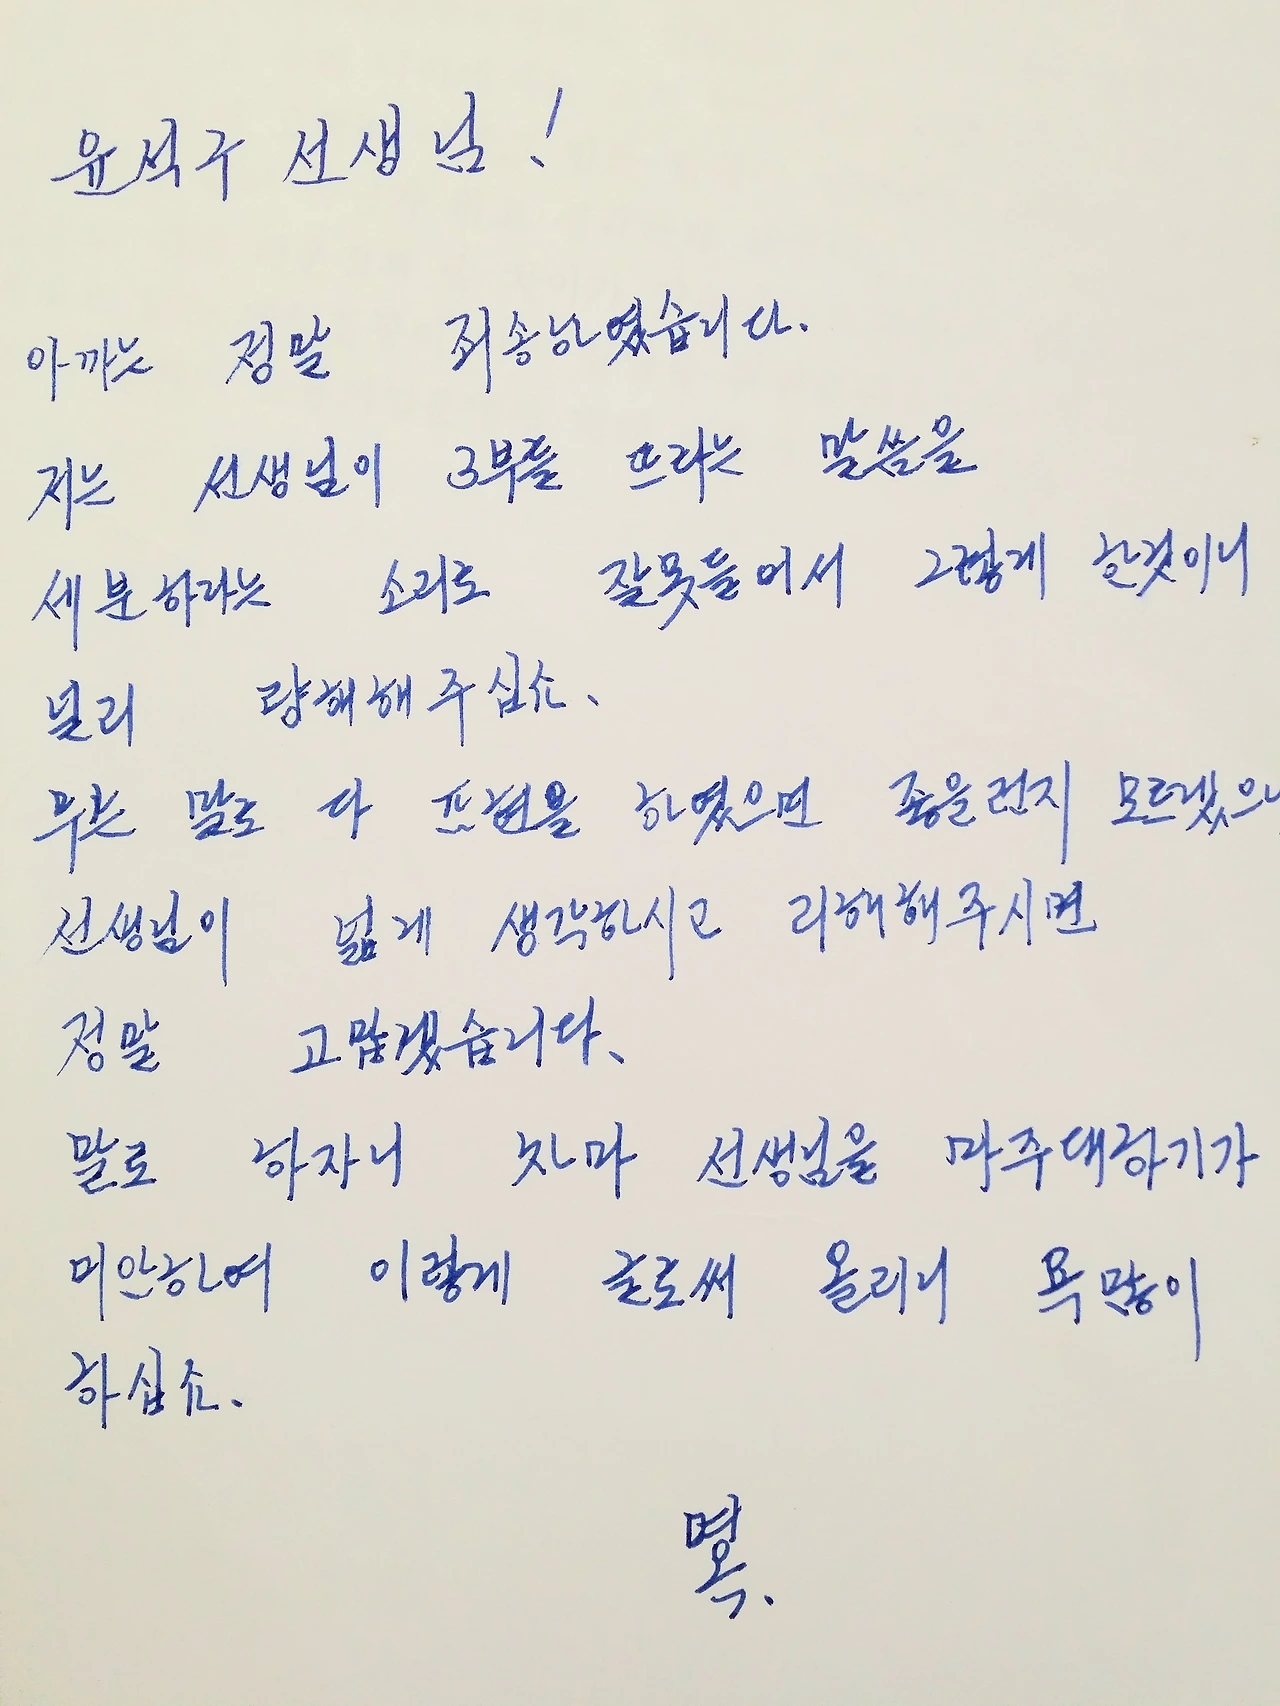 윤석구 선생님!
아까는 정말 죄송하였습니다.
저는 선생님이 3부를 뜨라는 말씀을
세분하라는 소리로 잘못들어서 그렇게 한것이니
널리 량해해주십쇼.
무슨 말로 다 표현을 하였으면 좋을런지 모르겠으니
선생님이 넓게 생각하시고 리해해주시면
정말 고맙겠습니다.
말로 하자니 차마 선생님을 마주대하기가
미안하여 이렇게 글로써 올리니 욕많이
하십쇼.
명옥.